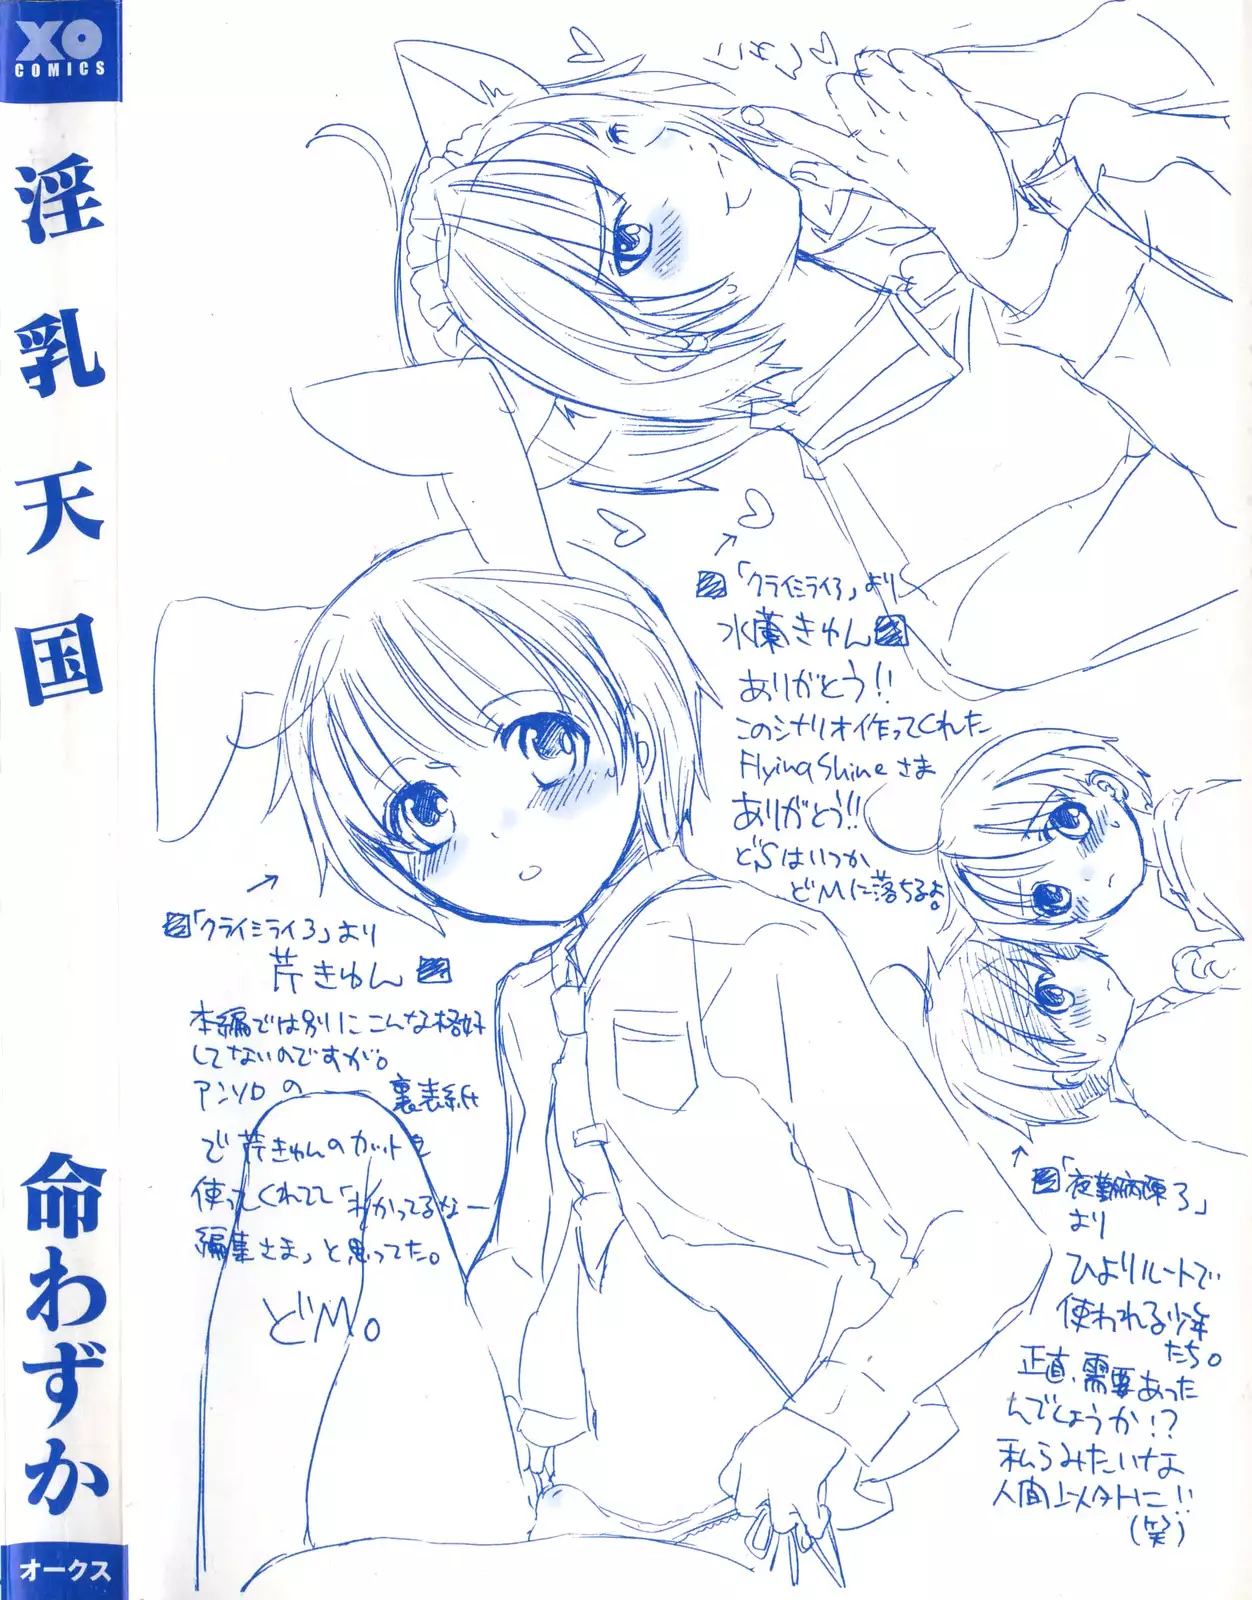 XO
COMICS
淫乳天国
命わずか
オークス
「クライミライ3」より
水蘭きゅん
ありがとう!!
このシナリオ作ってくれた
FlyingShineさま
ありがとう!!
どSはいつか
どMに落ちるよ。
「クライミライ3」より
芹きゅん
本編では別にこんな格好
してないのですが。
アンソロの裏表紙
で芹きゅんのカットを
使ってくれてて「わかってるなー
編集さま」と思ってた。
どM。
「夜勤病棟3」
より
ひよりルートで
使われる少年
たち。
正直、需要あった
んでしょうか!?
私らみたいな
人間以外に!!
(笑)